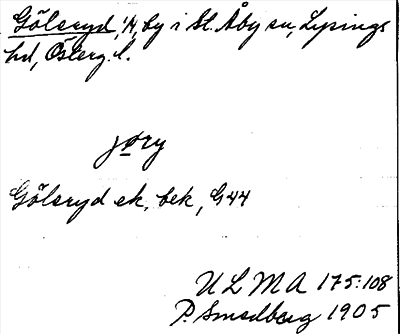 Gölsryd, 1/4, by i St. Åby sn, Lysings
hd, Österg. l.
jøry
Gölsryd ek. bek, G 44
U L M A 175:108
P. Smedberg 1905